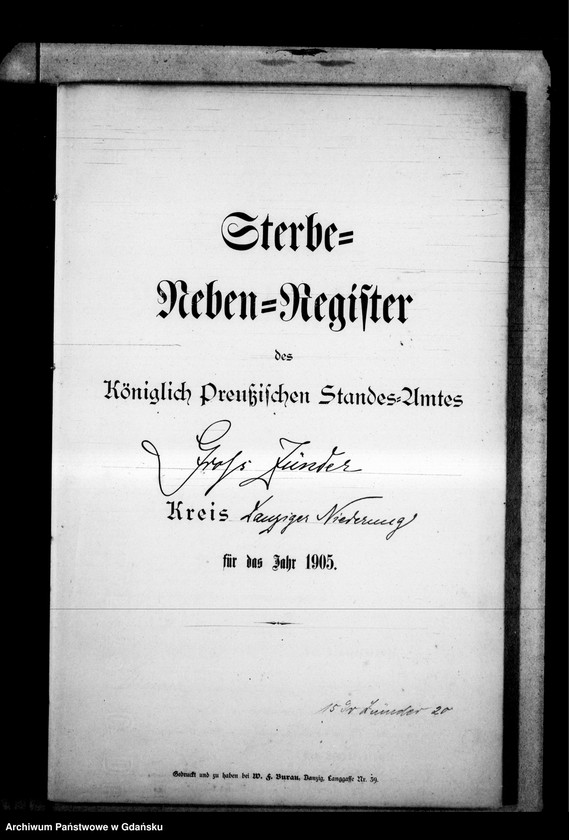 Sterbe=
Neben=Register
des
Königlich Preußischen Standes=Amtes
Gross Zünder
Kreis Danziger Niederung
für das Jahr 1905.
15 Gr Zünder 20
Gedruckt und zu haben bei W. F. Burau, Danzig, Langgasse Nr. 39.
Archiwum Państwowe w Gdańsku